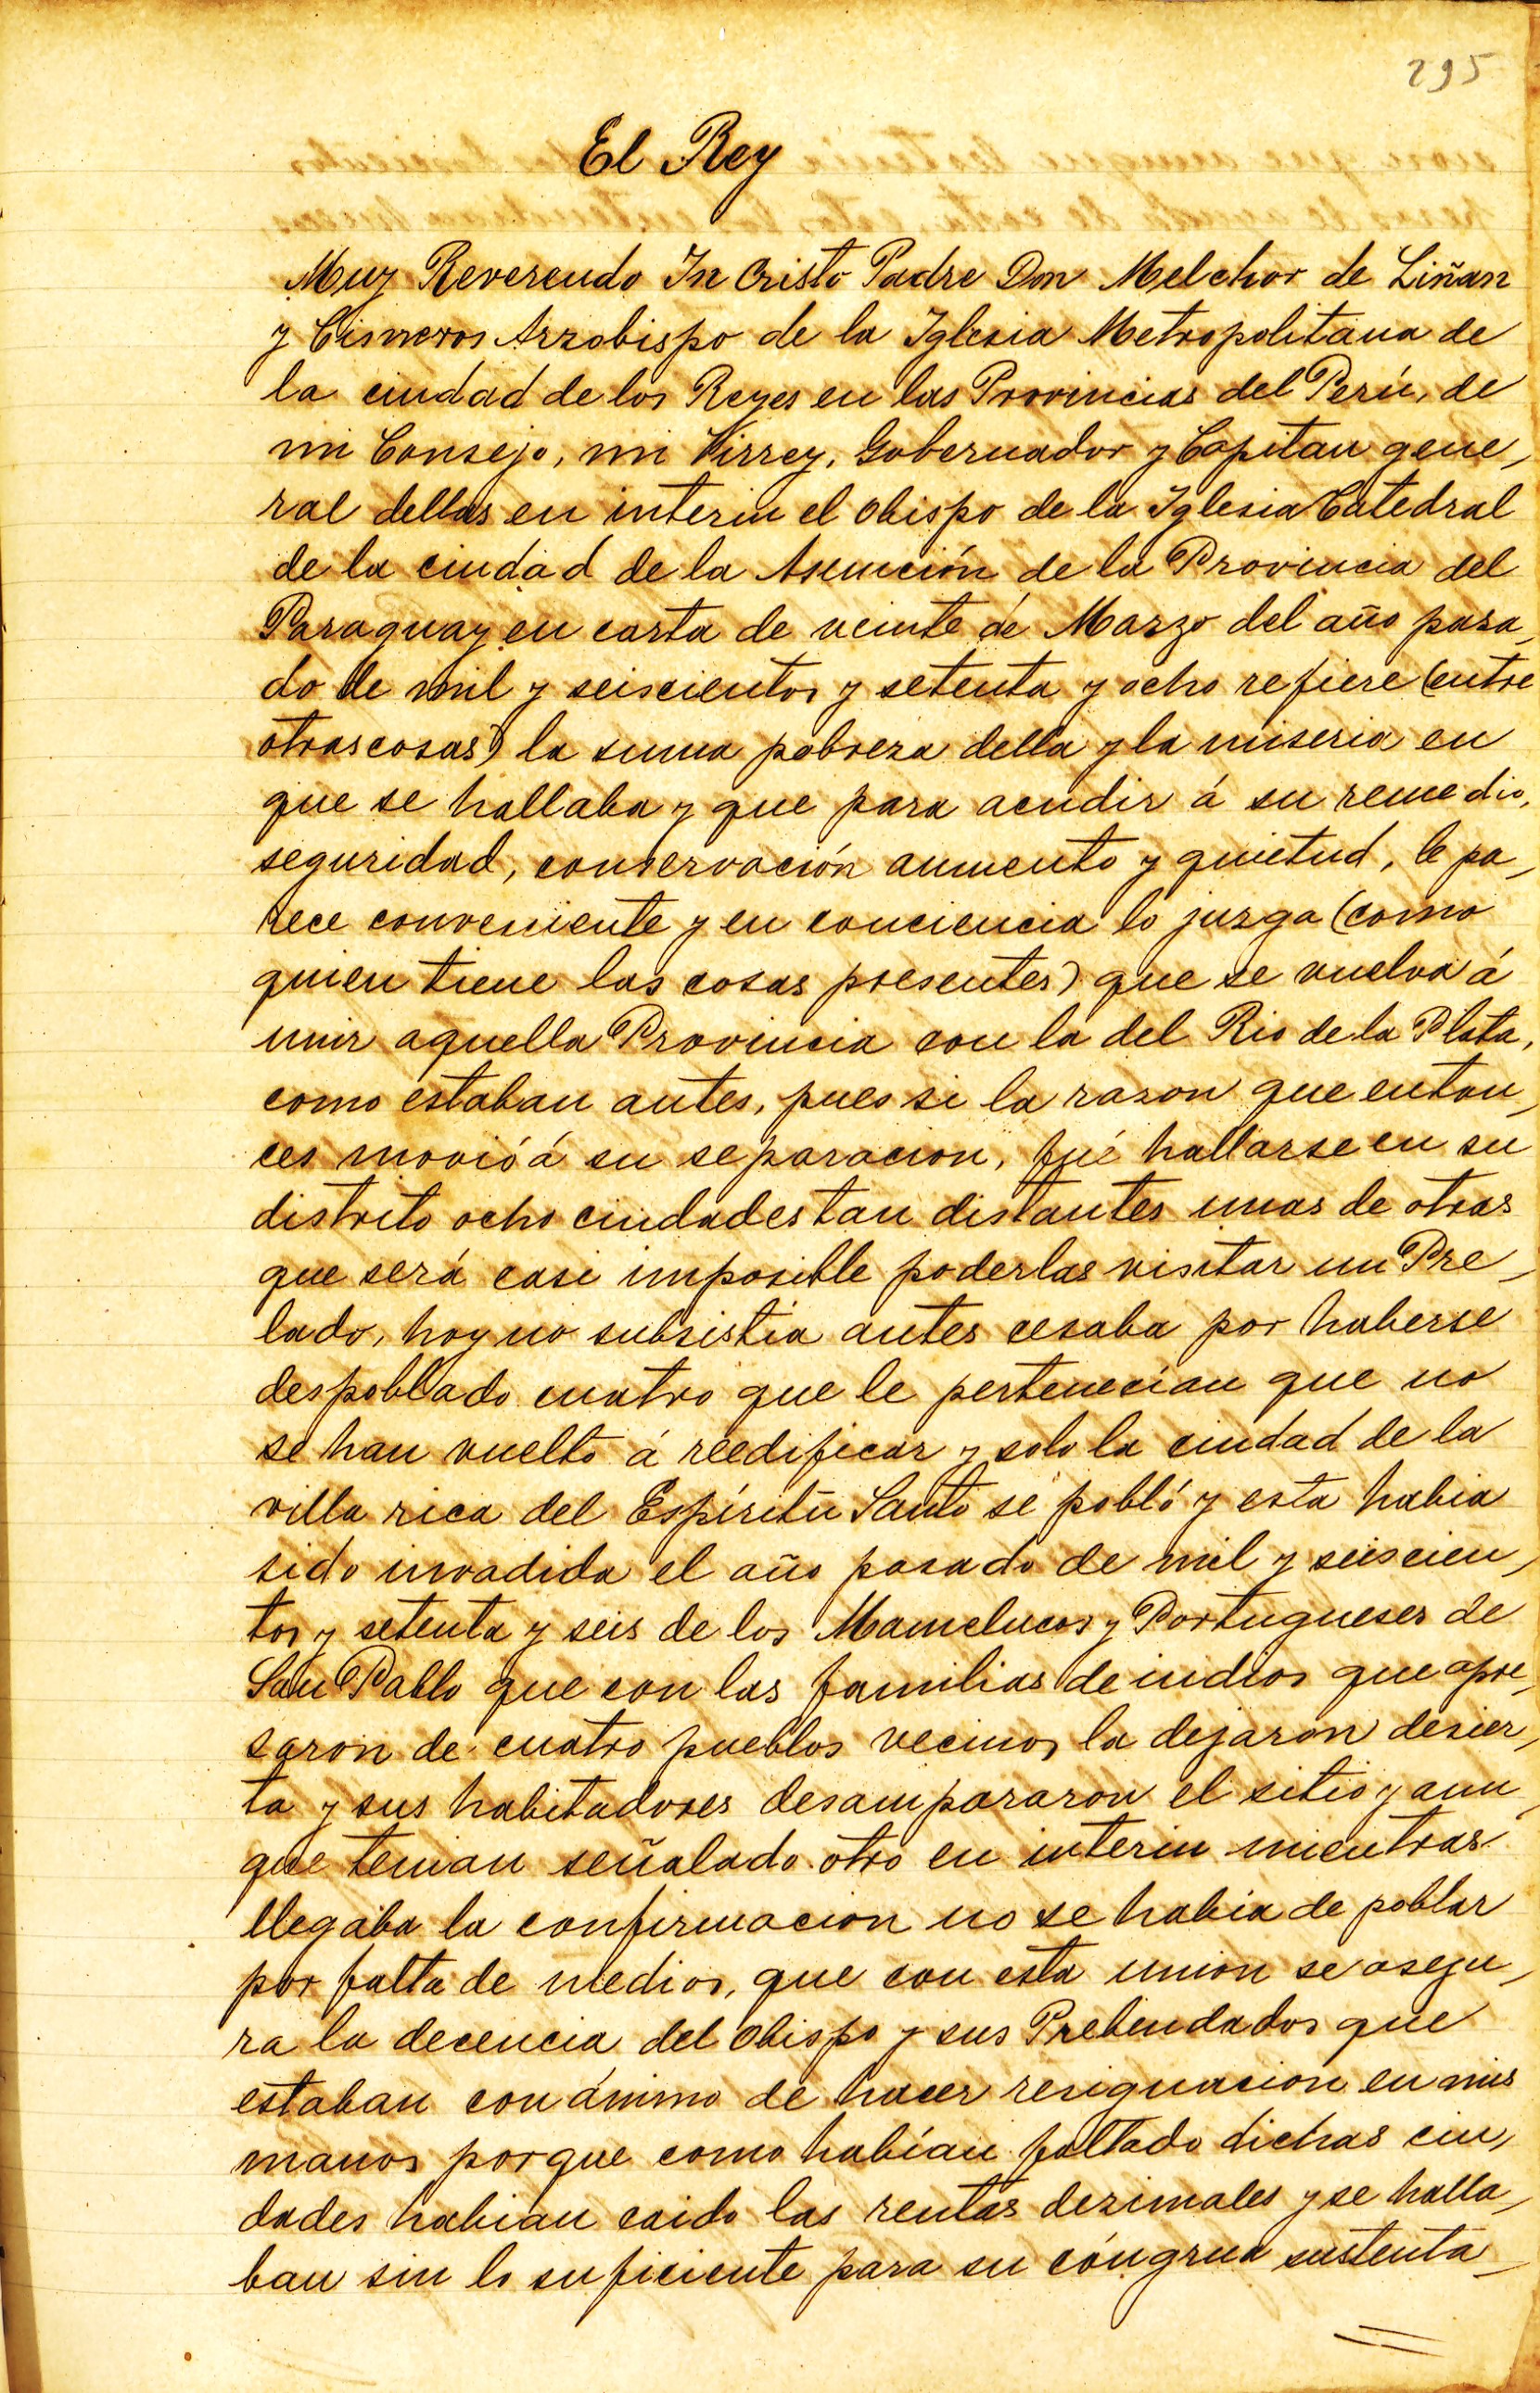 295
El Rey
Muy Reverendo In Cristo Padre Don Melchor de Liñan
y Cisneros Arzobispo de la Iglesia Metropolitana de
la ciudad de los Reyes en las Provincias del Perú, de
mi Consejo, mi Virrey, Gobernador y Capitan gene,
ral dellas en interin el obispo de la Iglesia Catedral
de la ciudad de la Asunción de la Provincia del
Paraguay en carta de veinte de Marzo del año pasa,
do de mil y seiscientos y setenta y ocho refiere (entre
otras cosas) la suma pobreza della y la miseria en
que se hallaba y que para acudir á su remedio,
seguridad, conservación aumento y quietud, le pa,
rece conveniente y en conciencia lo juzga (como
quien tiene las cosas presentes) que se vuelva á
unir aquella Provincia con la del Rio de la Plata,
como estaban antes, pues si la razon que enton,
ces movió á su separacion, fué hallarse en su
distrito ocho ciudades tan distantes unas de otras
que será casi imposible poderlas visitar un Pre,
lado, hoy no subsistia antes cesaba por haberse
despoblado cuatro que le pertenecian que no
se han vuelto á reedificar y solo la ciudad de la
villa rica del Espíritu Santo se pobló y esta habia
sido invadida el año pasado de mil y seiscien,
tos y setenta y seis de los Mamelucos y Portugueses de
San Pablo que con las familias de indios que apre,
saron de cuatro pueblos vecinos la dejaron desier,
ta y sus habitadores desampararon el sitio y aun,
que tenian señalado otro en interin mientras
llegaba la confirmacion no se habia de poblar
por falta de medios, que con esta union se asegu,
ra la decencia del obispo y sus Prebendados que
estaban con ánimo de hacer resignacion en mis
manos porque como habían faltado dichas ciu,
dades habian caido las rentas dezimales y se halla,
ban sin lo suficiente para su cóngrua sustenta,